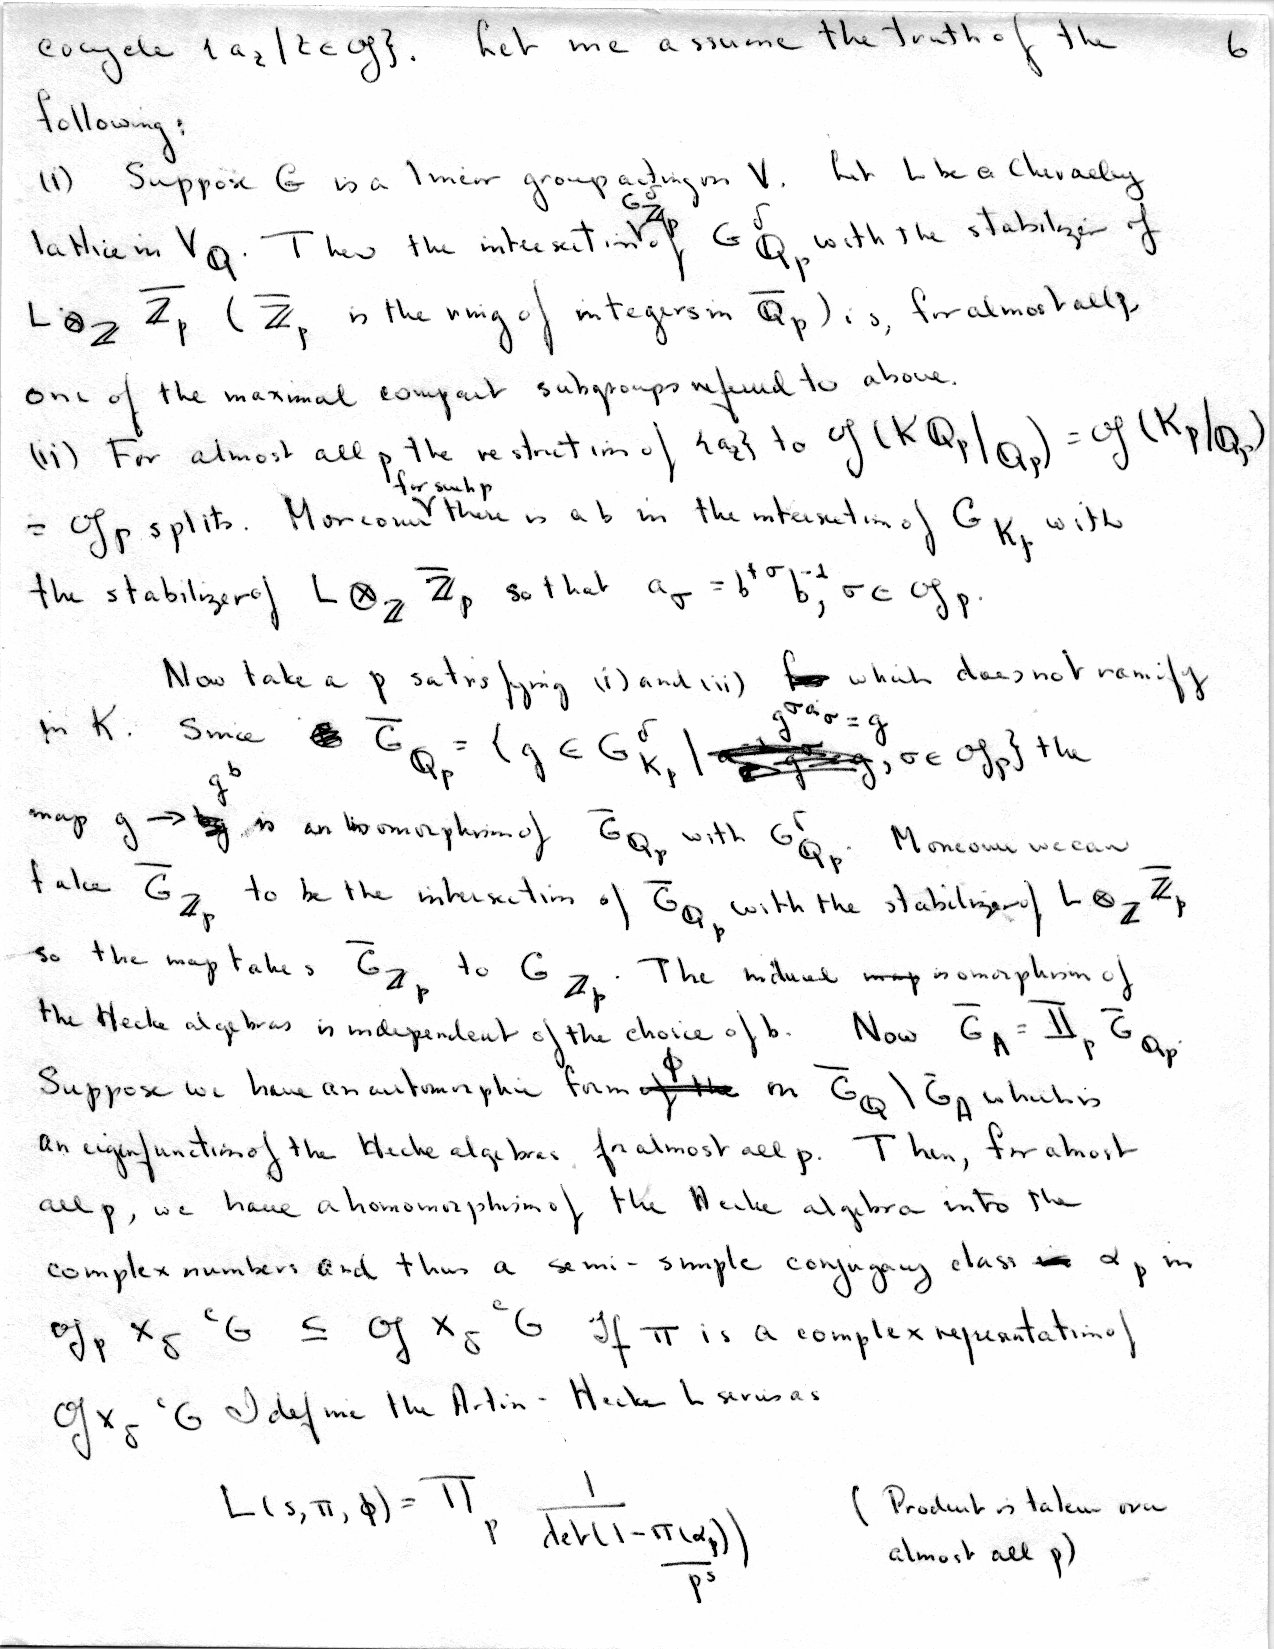 cocycle {a_τ | τ ∈ 𝔤}. Let me assume the truth of the 6
following:
(i) Suppose G is a linear group acting on V. Let L be a Chevalley
lattice in V_ℚ. Then the intersection G^δ_{ℤ_p} of G^δ_{ℚ_p} with the stabilizer of
L ⊗_ℤ \overline{ℤ}_p (\overline{ℤ}_p is the ring of integers in \overline{ℚ}_p) is, for almost all p
one of the maximal compact subgroups referred to above.
(ii) For almost all p the restriction of {a_τ} to 𝔤(Kℚ_p/ℚ_p) = 𝔤(K_p/ℚ_p)
= 𝔤_p splits. Moreover for such p there is a b in the intersection of G_{K_p} with
the stabilizer of L ⊗_ℤ \overline{ℤ}_p so that a_σ = b^{+σ} b^{-1}, σ ∈ 𝔤_p.
Now take a p satisfying (i) and (ii) which does not ramify
in K. Since \overline{G}_{ℚ_p} = {g ∈ G^δ_{K_p} | g^{σ a_σ} = g, σ ∈ 𝔤_p} the
map g → g^b is an isomorphism of \overline{G}_{ℚ_p} with G^δ_{ℚ_p}. Moreover we can
take \overline{G}_{ℤ_p} to be the intersection of \overline{G}_{ℚ_p} with the stabilizer of L ⊗_ℤ \overline{ℤ}_p
so the map takes \overline{G}_{ℤ_p} to G_{ℤ_p}. The induced isomorphism of
the Hecke algebras is independent of the choice of b. Now \overline{G}_A = ∏_p \overline{G}_{ℚ_p}.
Suppose we have an automorphic form φ on \overline{G}_ℚ \ \overline{G}_A which is
an eigenfunction of the Hecke algebras for almost all p. Then, for almost
all p, we have a homomorphism of the Hecke algebra into the
complex numbers and thus a semi-simple conjugacy class α_p in
𝔤_p ×_δ ^cG ⊆ 𝔤 ×_δ ^cG If π is a complex representation of
𝔤 ×_δ ^cG I define the Artin-Hecke L series as
L(s, π, φ) = ∏_p 1 / det(1 - π(α_p)/p^s) (Product is taken over
almost all p)